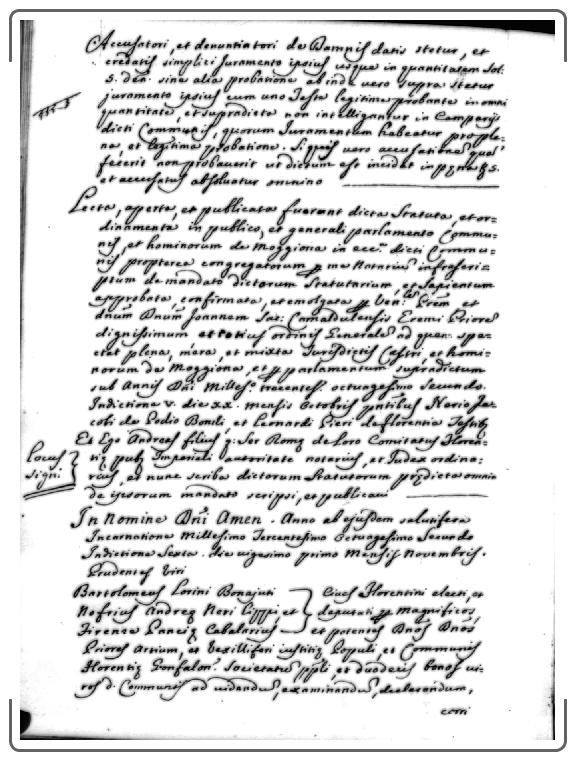 Accusatori, et denuntiatori de Damnis datis stetur, et
credatis simplici juramento ipsius usque in quantitatem sol:
5. den: sine alia probatione ab inde vero supra stetur
juramento ipsius cum uno Teste legitime probante in omni
quantitate, et supradicta non intelligantur in Camperijs
dicti Communis, quorum Juramentum habeatur pro ple=
na, et legitima probatione. Si quis vero accusatione
fecerit non probaverit ut dictum est incidat in 5.
et accusatus absoluatur omnino
Lecta, aperta, et publicata fuerunt dicta Statuta, et or=
dinamenta in publico, et generali parlamento Commu=
nis, et hominorum de Moggiona in dicti Commu=
nis propterea congregatorum p me Notarius infrascri=
ptum de mandato dictorum Statutarium, et Sapientum
approbata, confirmata, et emolgata p Ven: Prem et
dnum Dnum Joannem Camaldulensis Eremi Priore
dignissimum et totius ordinis Generale ad quem spe=
ctat plena, mera, et mixta Jurisdictis Castri, et homi=
norum de Moggiona, et p parlamentum supradictum
sub Annis Dni Milless.o trecentess. octuagesimo secundo.
Indictione V. die XX. mensis octobris pntibus Nerio Ja=
cobi de Podio Bonili, et Leonardi Pieri de florentia Testib
Et Ego Andreas filius q: Ser Romę de loro Comitatus Floren=
tię pub Imperiali autoritate notarius, et Judex ordina=
rius, et nunc scriba dictorum Statutorum prędicta omnia
de ipsorum mandato scripsi, et publicavi
Locus
Signi
In Nomine Dni Amen. Anno ab ejusdem salutifera
Incarnatione Millesimo Tercentesimo Octuagesimo Secundo
Indictione Sexta. die vigesimo primo Mensis Novembris.
Prudentes Viri
Bartolomeus Lorini Bonajuti
Nofrius Andreę Neri Lippi, et
Firenze Pancię Cabalarius
Cives Florentini electi, et
deputati p Magnificos,
et potentes Dnos Dnos
Priores Artium, et Vexilliferi iustitię Populi et Communis
Florentię Gonfalon. Societatus ppli, et duodecis bonos vi=
ros d. Communis ad vidandu, examinandu, declarandum,
corri